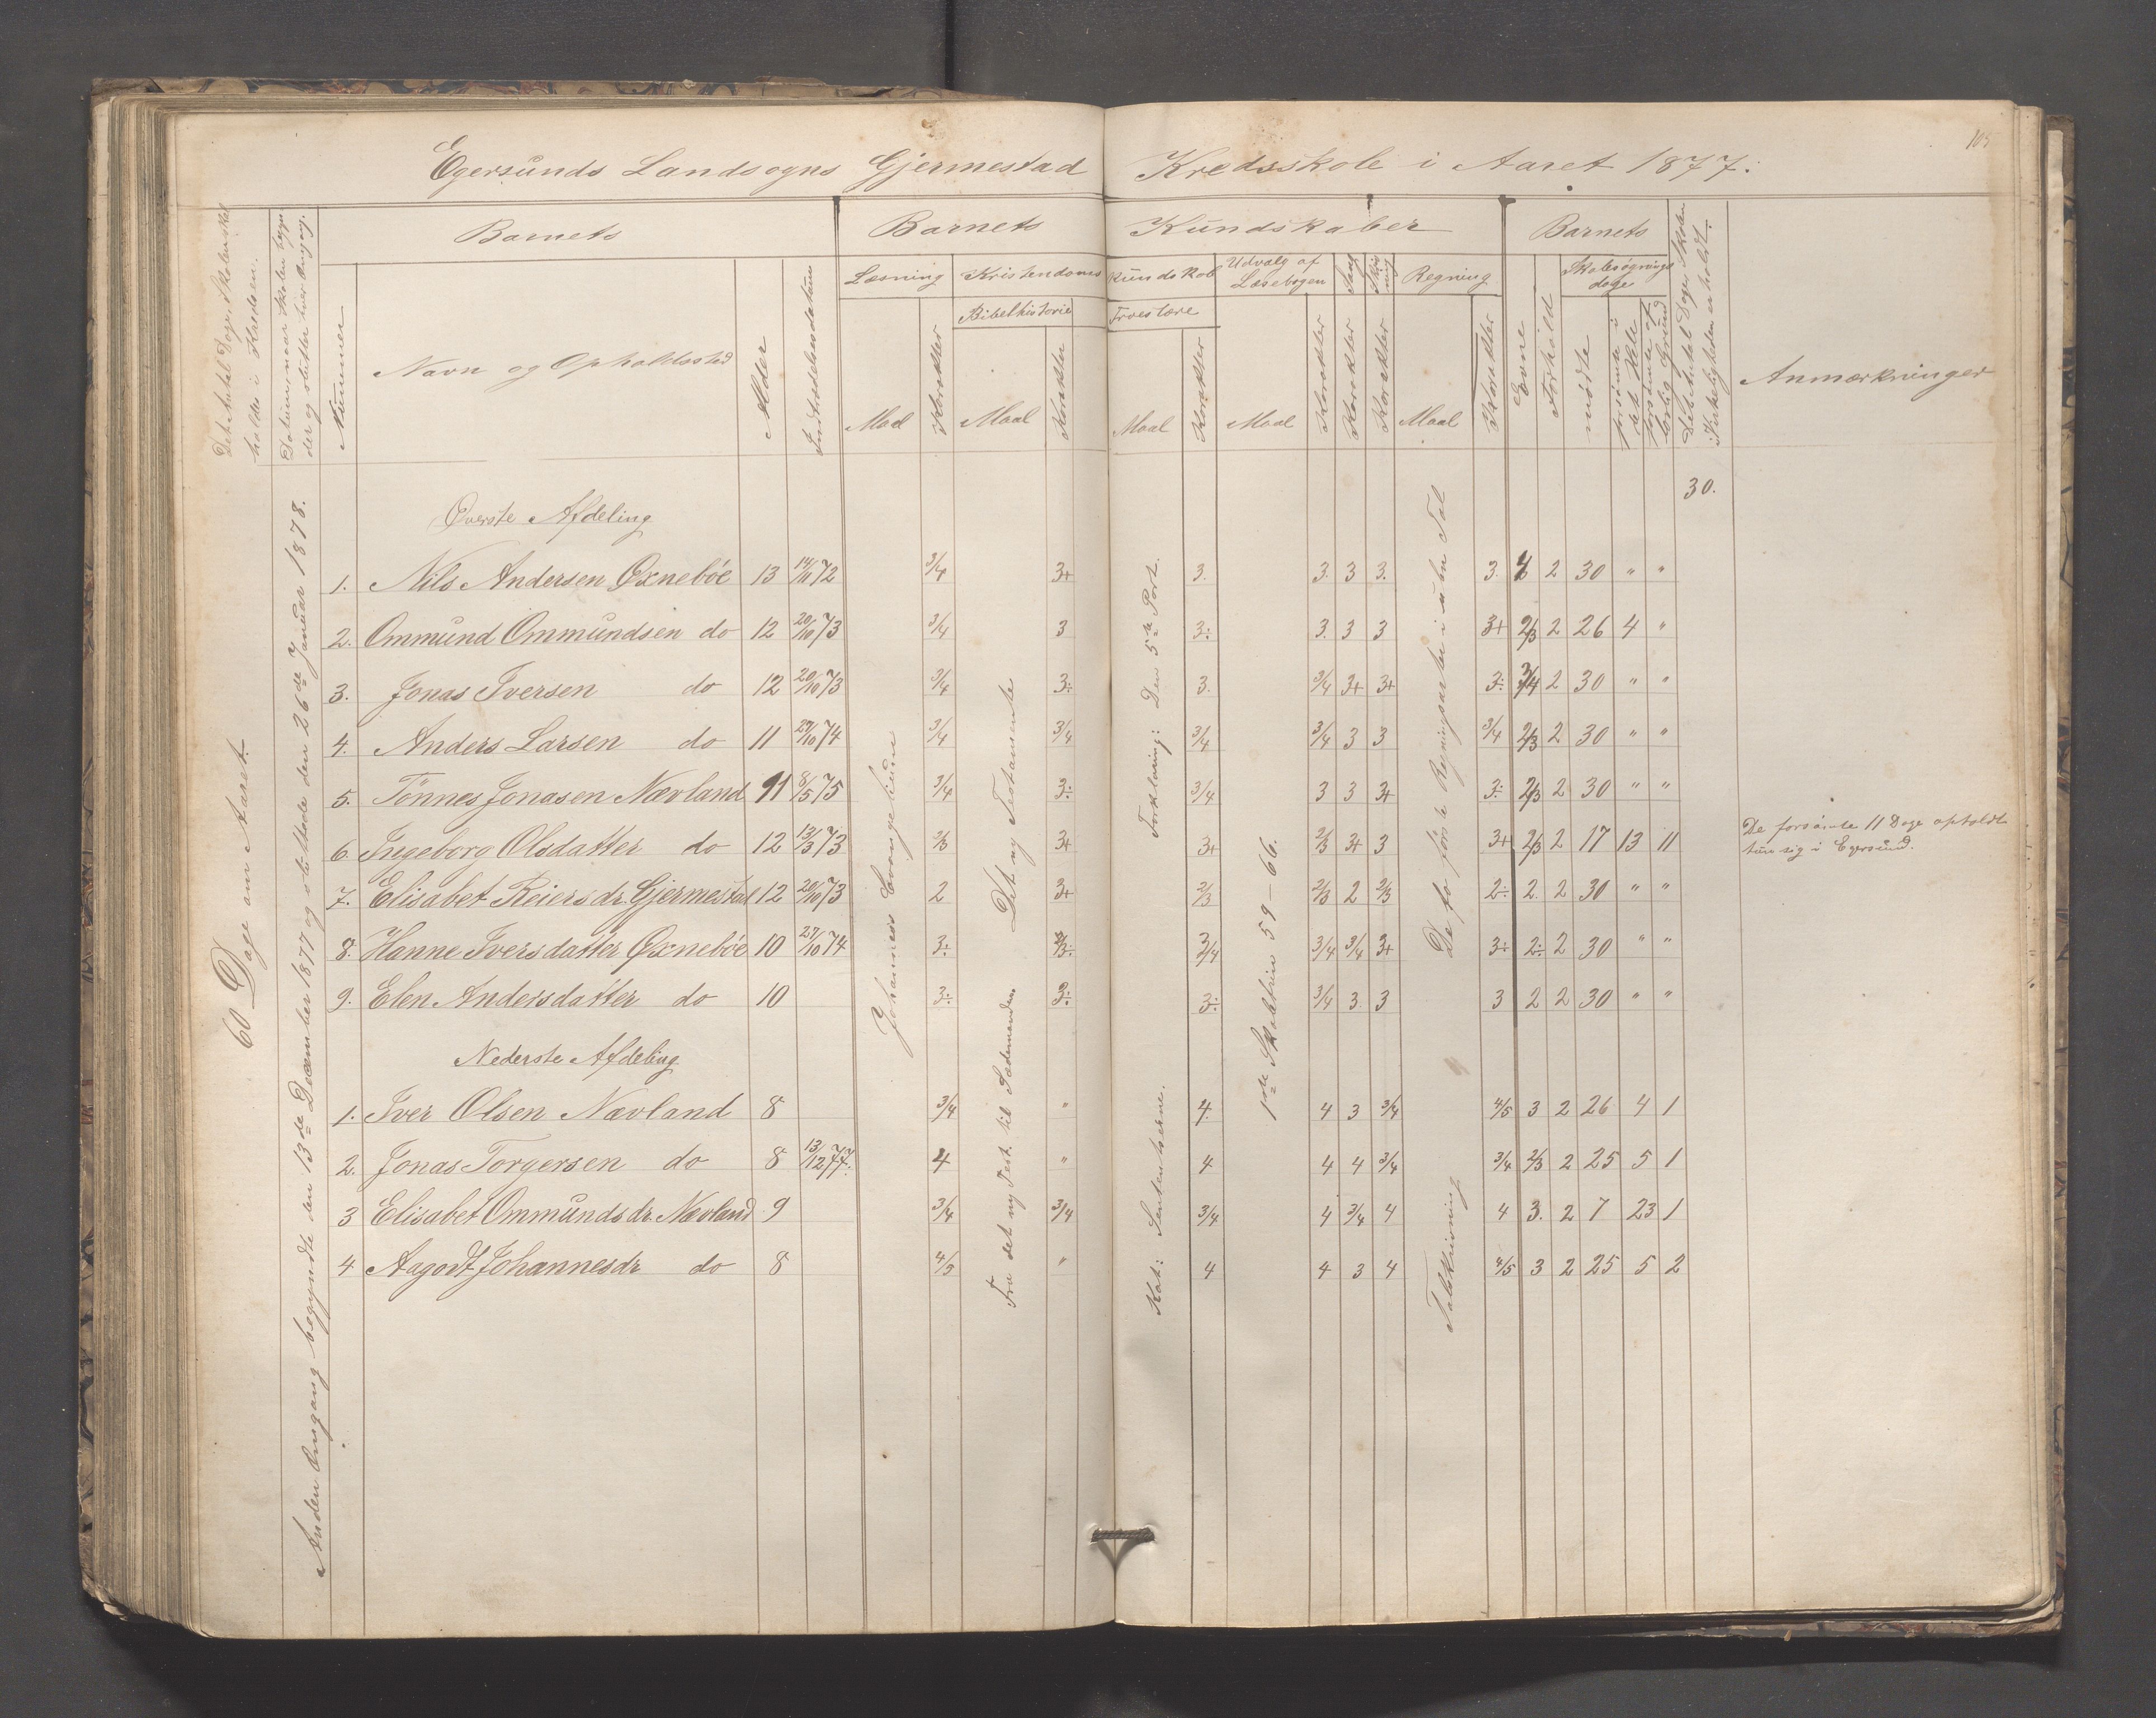 105
Egersunds Landsogns Gjermestad Kredsskole i Aaret 1877.
Det Antal Dage, Skolen skal holdes i Kredsen.
Datum, naar Skolen begynder og slutter hver Omgang.
Barnets
Barnets Kundskaber
Barnets
Det Antal Dage, Skolen i Virkeligheden er holdt.
Anmærkninger
Nummer
Navn og Opholdssted
Alder
Indtrædelsesdatum
Læsning
Kristendomskundskab
Udvalg af Læsebogen
Sang
Skrivning
Regning
Evne
Forhold
Skolesøgningsdage
Bibelhistorie
Troeslære
mødte
forsømte i det Hele
forsømte af lovlig Grund
Maal Karakter Maal Karakter Maal Karakter Maal Karakter Karakter Karakter Maal Karakter
60 Dage om Aaret.
Anden Omgang begyndte den 13de December 1877 og sluttede den 26de Januar 1878.
Johannes Evangelium
Det ny Testamente
Fra det ny Test. til Sædemanden.
Forklaring: Den 5te Part.
Kat: Sententserne.
1ste Skoletrin 59-66.
De fo første Regningsarter i ubn Tal
Talskrivning
30.
Øverste Afdeling
1. Nils Andersen Øxnebøe 13 14/11 72 3/4 3+ 3. 3. 3 3. 3. 4 2 30 " "
2. Ommund Ommundsen do 12 20/10 73 3/4 3 3÷ 3. 3 3 3+ 2/3 2 26 4 "
3. Jonas Iversen do 12 20/10 73 3/4 3÷ 3. 3/4 3+ 3+ 3÷ 3/4 2 30 " "
4. Anders Larsen do 11 29/10 74 3/4 3/4 3/4 3/4 3 3 3/4 2/3 2 30 " "
5. Tönnes Jonasen Nævland 11 8/5 75 3/4 3÷ 3/4 3 3 3+ 3÷ 2/3 2 30 " "
6. Ingeborg Olsdatter do 12 13/3 73 2/3 3+ 3+ 2/3 3+ 3 3+ 2/3 2 17 13 11 De forsømte 11 Dage opholdt hun sig i Egersund.
7. Elisabet Reiersdr. Gjermestad 12 20/10 73 2 3+ 2/3 2/3 2 2/3 2÷ 2. 2 30 " "
8. Hanne Iversdatter Øxnebøe 10 29/10 74 3÷ 3÷ 3/4 3/4 3/4 3+ 3÷ 2÷ 2 30 " "
9. Elen Andersdatter do 10 3÷ 3÷ 3÷ 3/4 3. 3 3 2 2 30 " "
Nederste Afdeling
1. Iver Olsen Nævland 8 3/4 " 4. 4 3 3/4 4/5 3 2 26 4 1
2. Jonas Torgersen do 8 13/12 77. 4 " 4 4 4 3/4 3/4 2/3 2 25 5 1
3 Elisabet Ommundsdr. Nævland 9 3/4 3/4 3/4 4 3/4 4 4 3. 2 7 23 1
4 Aagodt Johannesdr do 8 4/5 " 4 4 3 4 4/5 3 2 25 5 2